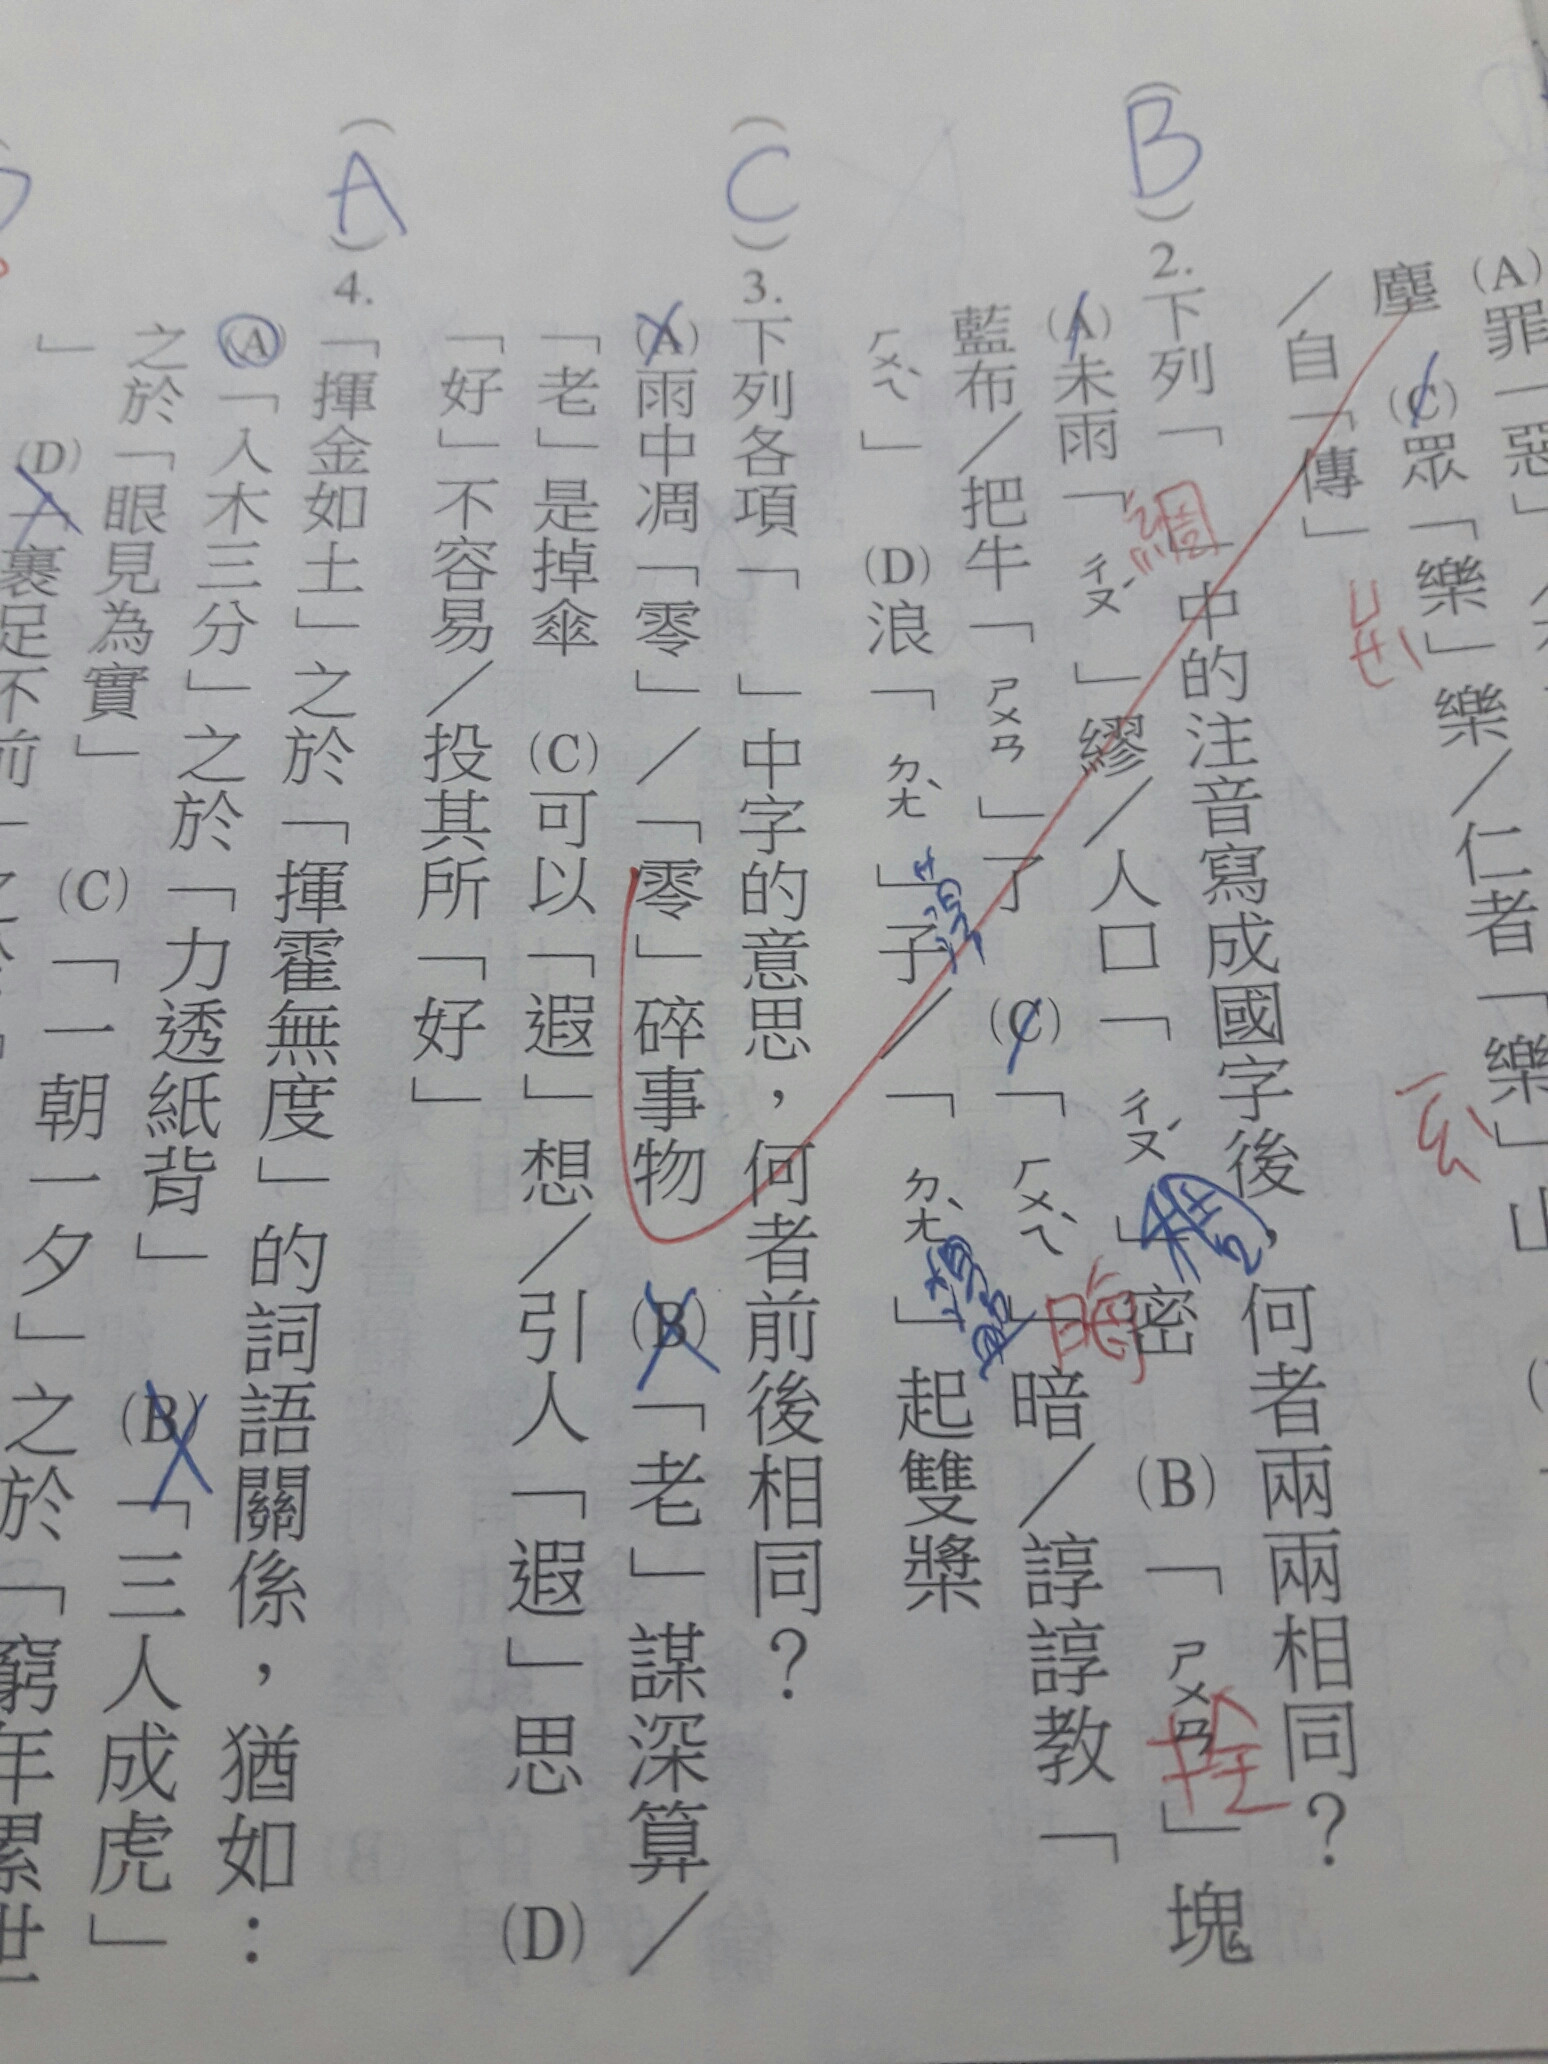 (A)罪「惡」
塵 (C)眾「樂」樂/仁者「樂」山
/自「傳」
ㄩㄝˋ
ㄧㄠˋ
(B)2.下列「 」中的注音寫成國字後,何者兩兩相同?
(A)未雨「ㄔㄡˊ」繆/人口「ㄔㄡˊ」密 (B)「ㄕㄨㄢ」塊
綢
稠
拴
藍布/把牛「ㄕㄨㄢ」了 (C)「ㄏㄨㄟˋ」暗/諄諄教「
晦
ㄏㄨㄟˋ」 (D)浪「ㄉㄤˋ」子/「ㄉㄤˋ」起雙槳
(C)3.下列各項「 」中字的意思,何者前後相同?
(A)雨中凋「零」/「零」碎事物 (B)「老」謀深算/
「老」是掉傘 (C)可以「遐」想/引人「遐」思 (D)
「好」不容易/投其所「好」
(A)4.「揮金如土」之於「揮霍無度」的詞語關係,猶如:
(A)「入木三分」之於「力透紙背」 (B)「三人成虎」
之於「眼見為實」 (C)「一朝一夕」之於「窮年累世
」 (D)「裹足不前」之